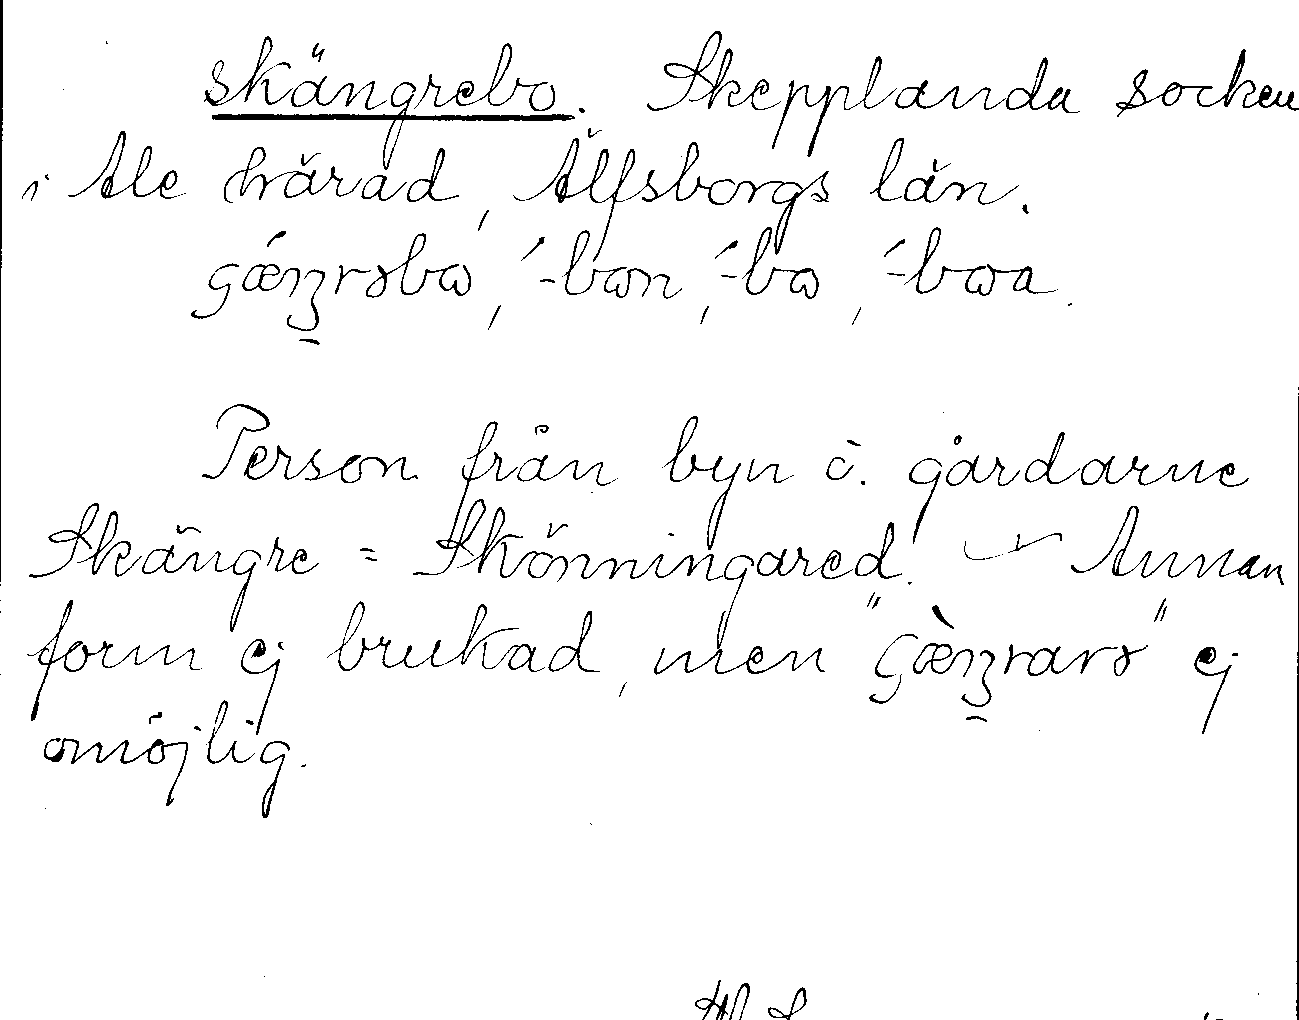 skängrebo. Skepplanda socken
i Ale härad, Älfsborgs län.
ʂǽŋrəbɷ, ´-bɷn, ´-bɷ, ´-bɷa.
Person från byn o. gårdarne
Skängre = Skönningared. — Annan
form ej brukad, men "ʂæ̀ŋrarə" ej
omöjlig.